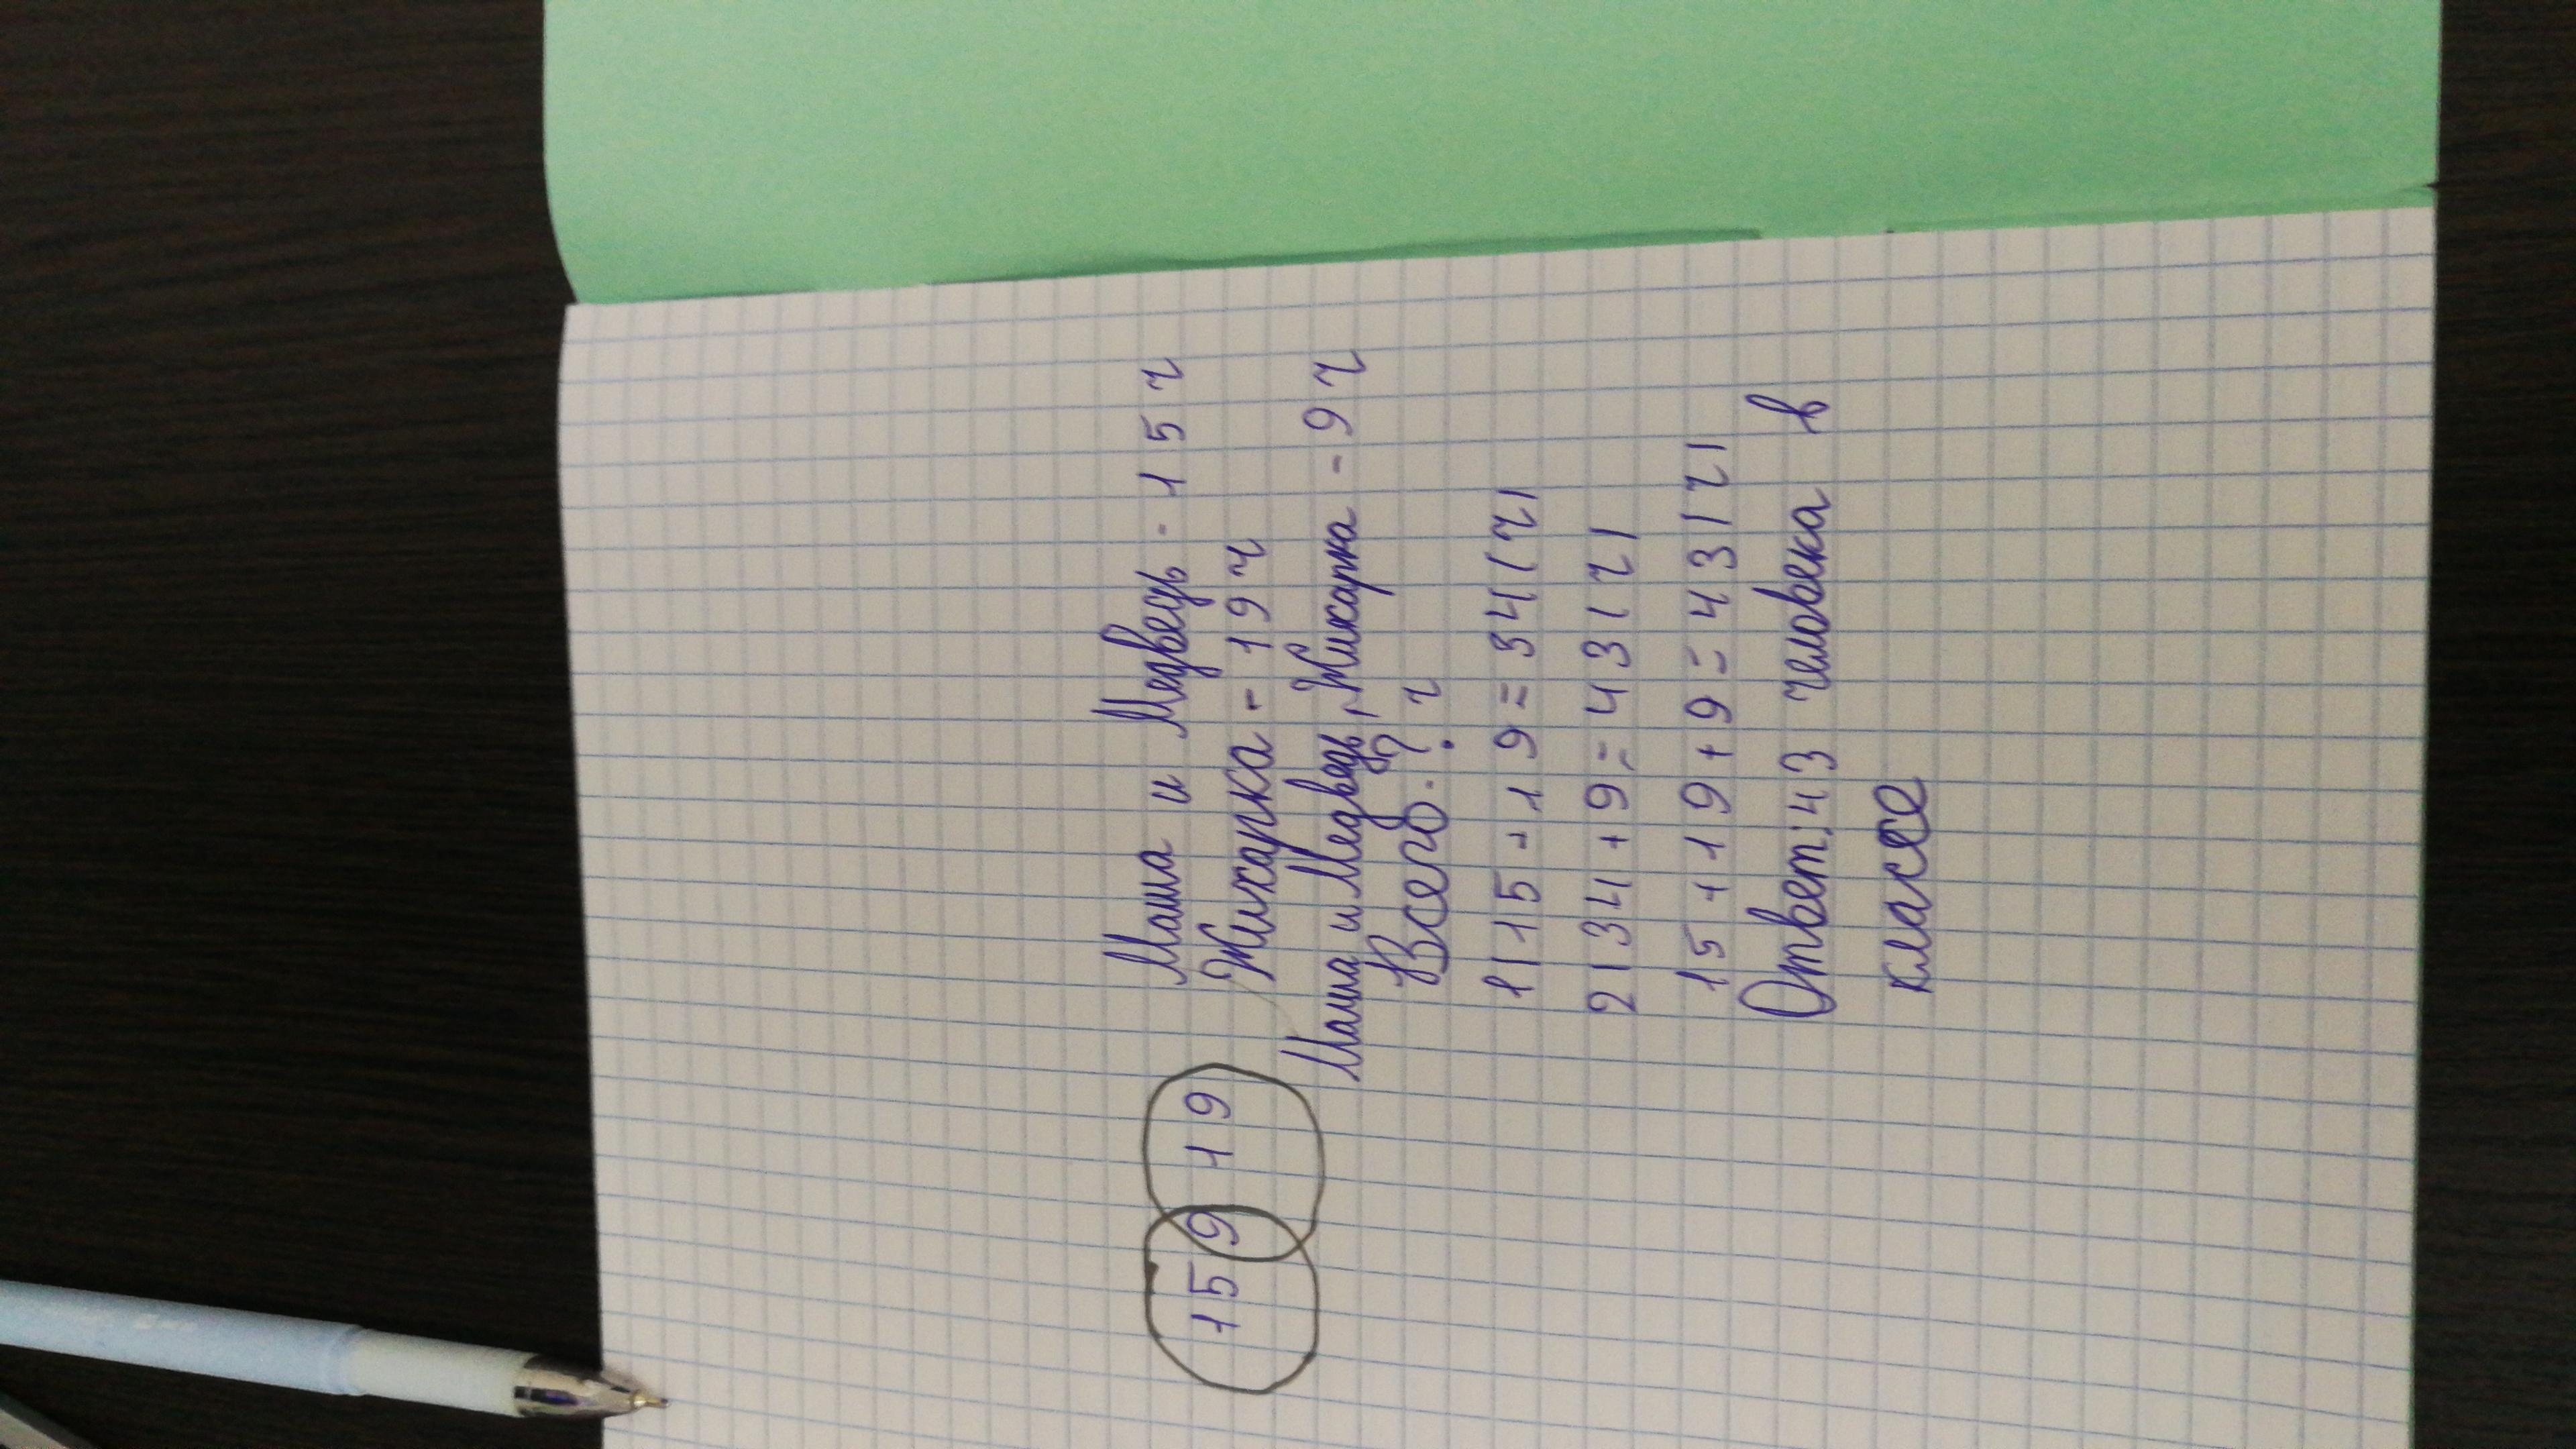 15 9 19
Маша и Медведь - 15 ч
Жихарка - 19 ч
Маша и Медведь, Жихарка - 9 ч
Всего - ? ч
1) 15 + 19 = 34 (ч)
2) 34 + 9 = 43 (ч)
15 + 19 + 9 = 43 (ч)
Ответ: 43 человека в
классе